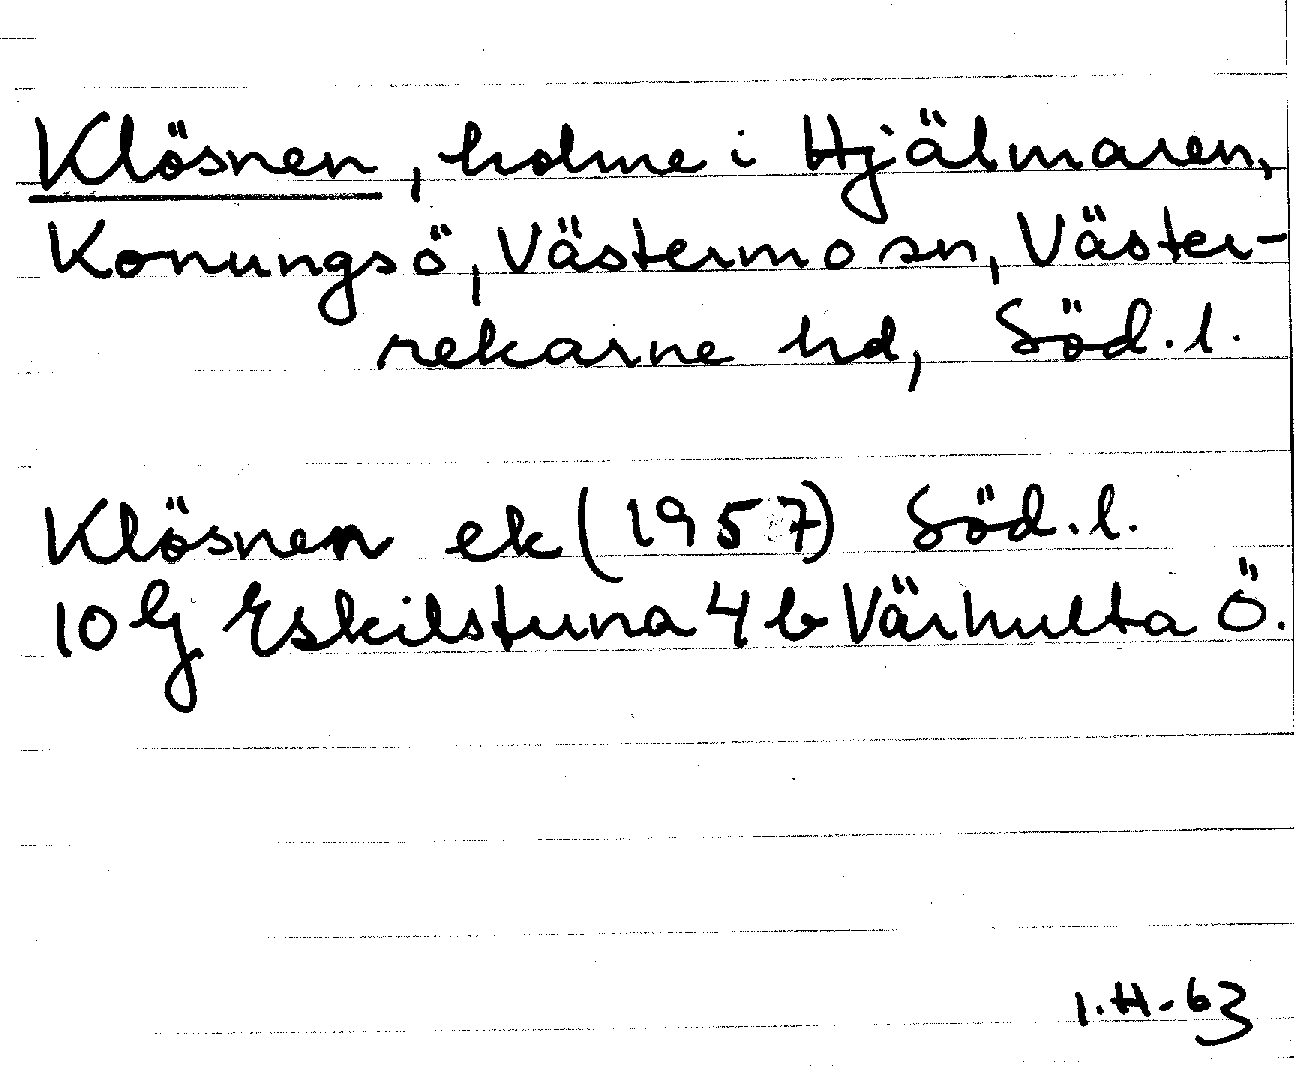 Klösnen, holme i Hjälmaren,
Konungsö, Västermo sn, Väster-
rekarne hd, Söd.l.
Klösnen ek (1957) Söd.l.
10 G Eskilstuna 4 b Värhulta Ö.
I.H-63